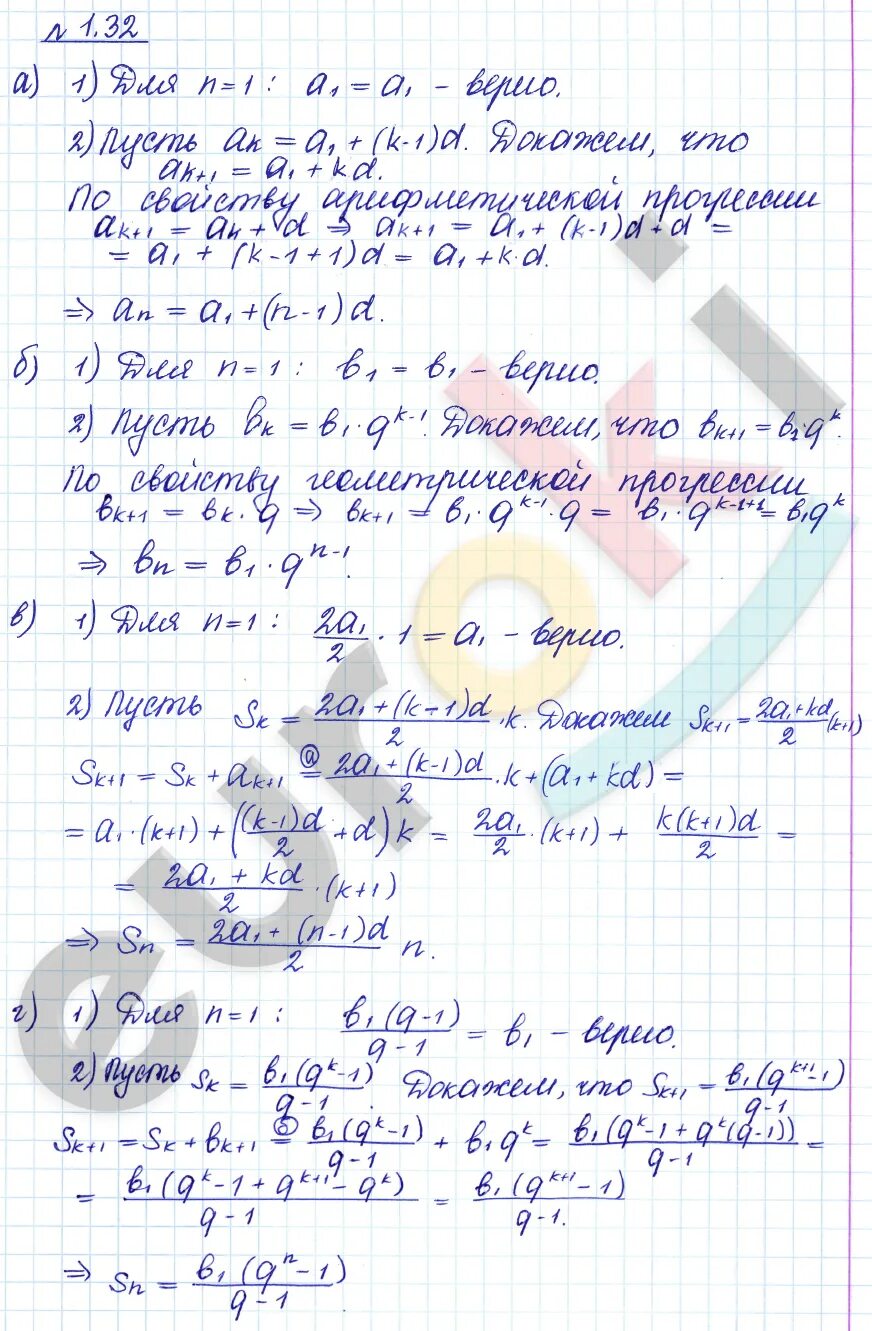 № 1.32
а) 1) Для n=1 : a₁ = a₁ – верно.
2) Пусть aₖ = a₁ + (k-1)d. Докажем, что
aₖ₊₁ = a₁ + kd.
По свойству арифметической прогрессии
aₖ₊₁ = aₖ + d ⇒ aₖ₊₁ = a₁ + (k-1)d + d =
= a₁ + (k-1+1)d = a₁ + k·d.
⇒ aₙ = a₁ + (n-1)d.
б) 1) Для n=1 : в₁ = в₁ – верно.
2) Пусть вₖ = в₁·q^(k-1). Докажем, что вₖ₊₁ = в₁·q^k.
По свойству геометрической прогрессии
вₖ₊₁ = вₖ·q ⇒ вₖ₊₁ = в₁·q^(k-1)·q = в₁·q^(k-1+1) = в₁q^k
⇒ вₙ = в₁·q^(n-1).
в) 1) Для n=1 : 2a₁/2 · 1 = a₁ – верно.
2) Пусть Sₖ = (2a₁ + (k-1)d)/2 · k. Докажем Sₖ₊₁ = (2a₁+kd)/2 (k+1)
Sₖ₊₁ = Sₖ + aₖ₊₁ =(а) (2a₁ + (k-1)d)/2 · k + (a₁ + kd) =
= a₁·(k+1) + ((k-1)d/2 + d)k = 2a₁/2 · (k+1) + k(k+1)d/2 =
= (2a₁ + kd)/2 · (k+1)
⇒ Sₙ = (2a₁ + (n-1)d)/2 n.
г) 1) Для n=1 : в₁(q-1)/(q-1) = в₁ – верно.
2) Пусть Sₖ = в₁(q^k-1)/(q-1). Докажем, что Sₖ₊₁ = в₁(q^(k+1)-1)/(q-1)
Sₖ₊₁ = Sₖ + вₖ₊₁ =(б) в₁(q^k-1)/(q-1) + в₁q^k = в₁(q^k-1+q^k(q-1))/(q-1) =
= в₁(q^k-1+q^(k+1)-q^k)/(q-1) = в₁(q^(k+1)-1)/(q-1).
⇒ Sₙ = в₁(q^n-1)/(q-1)
euroki